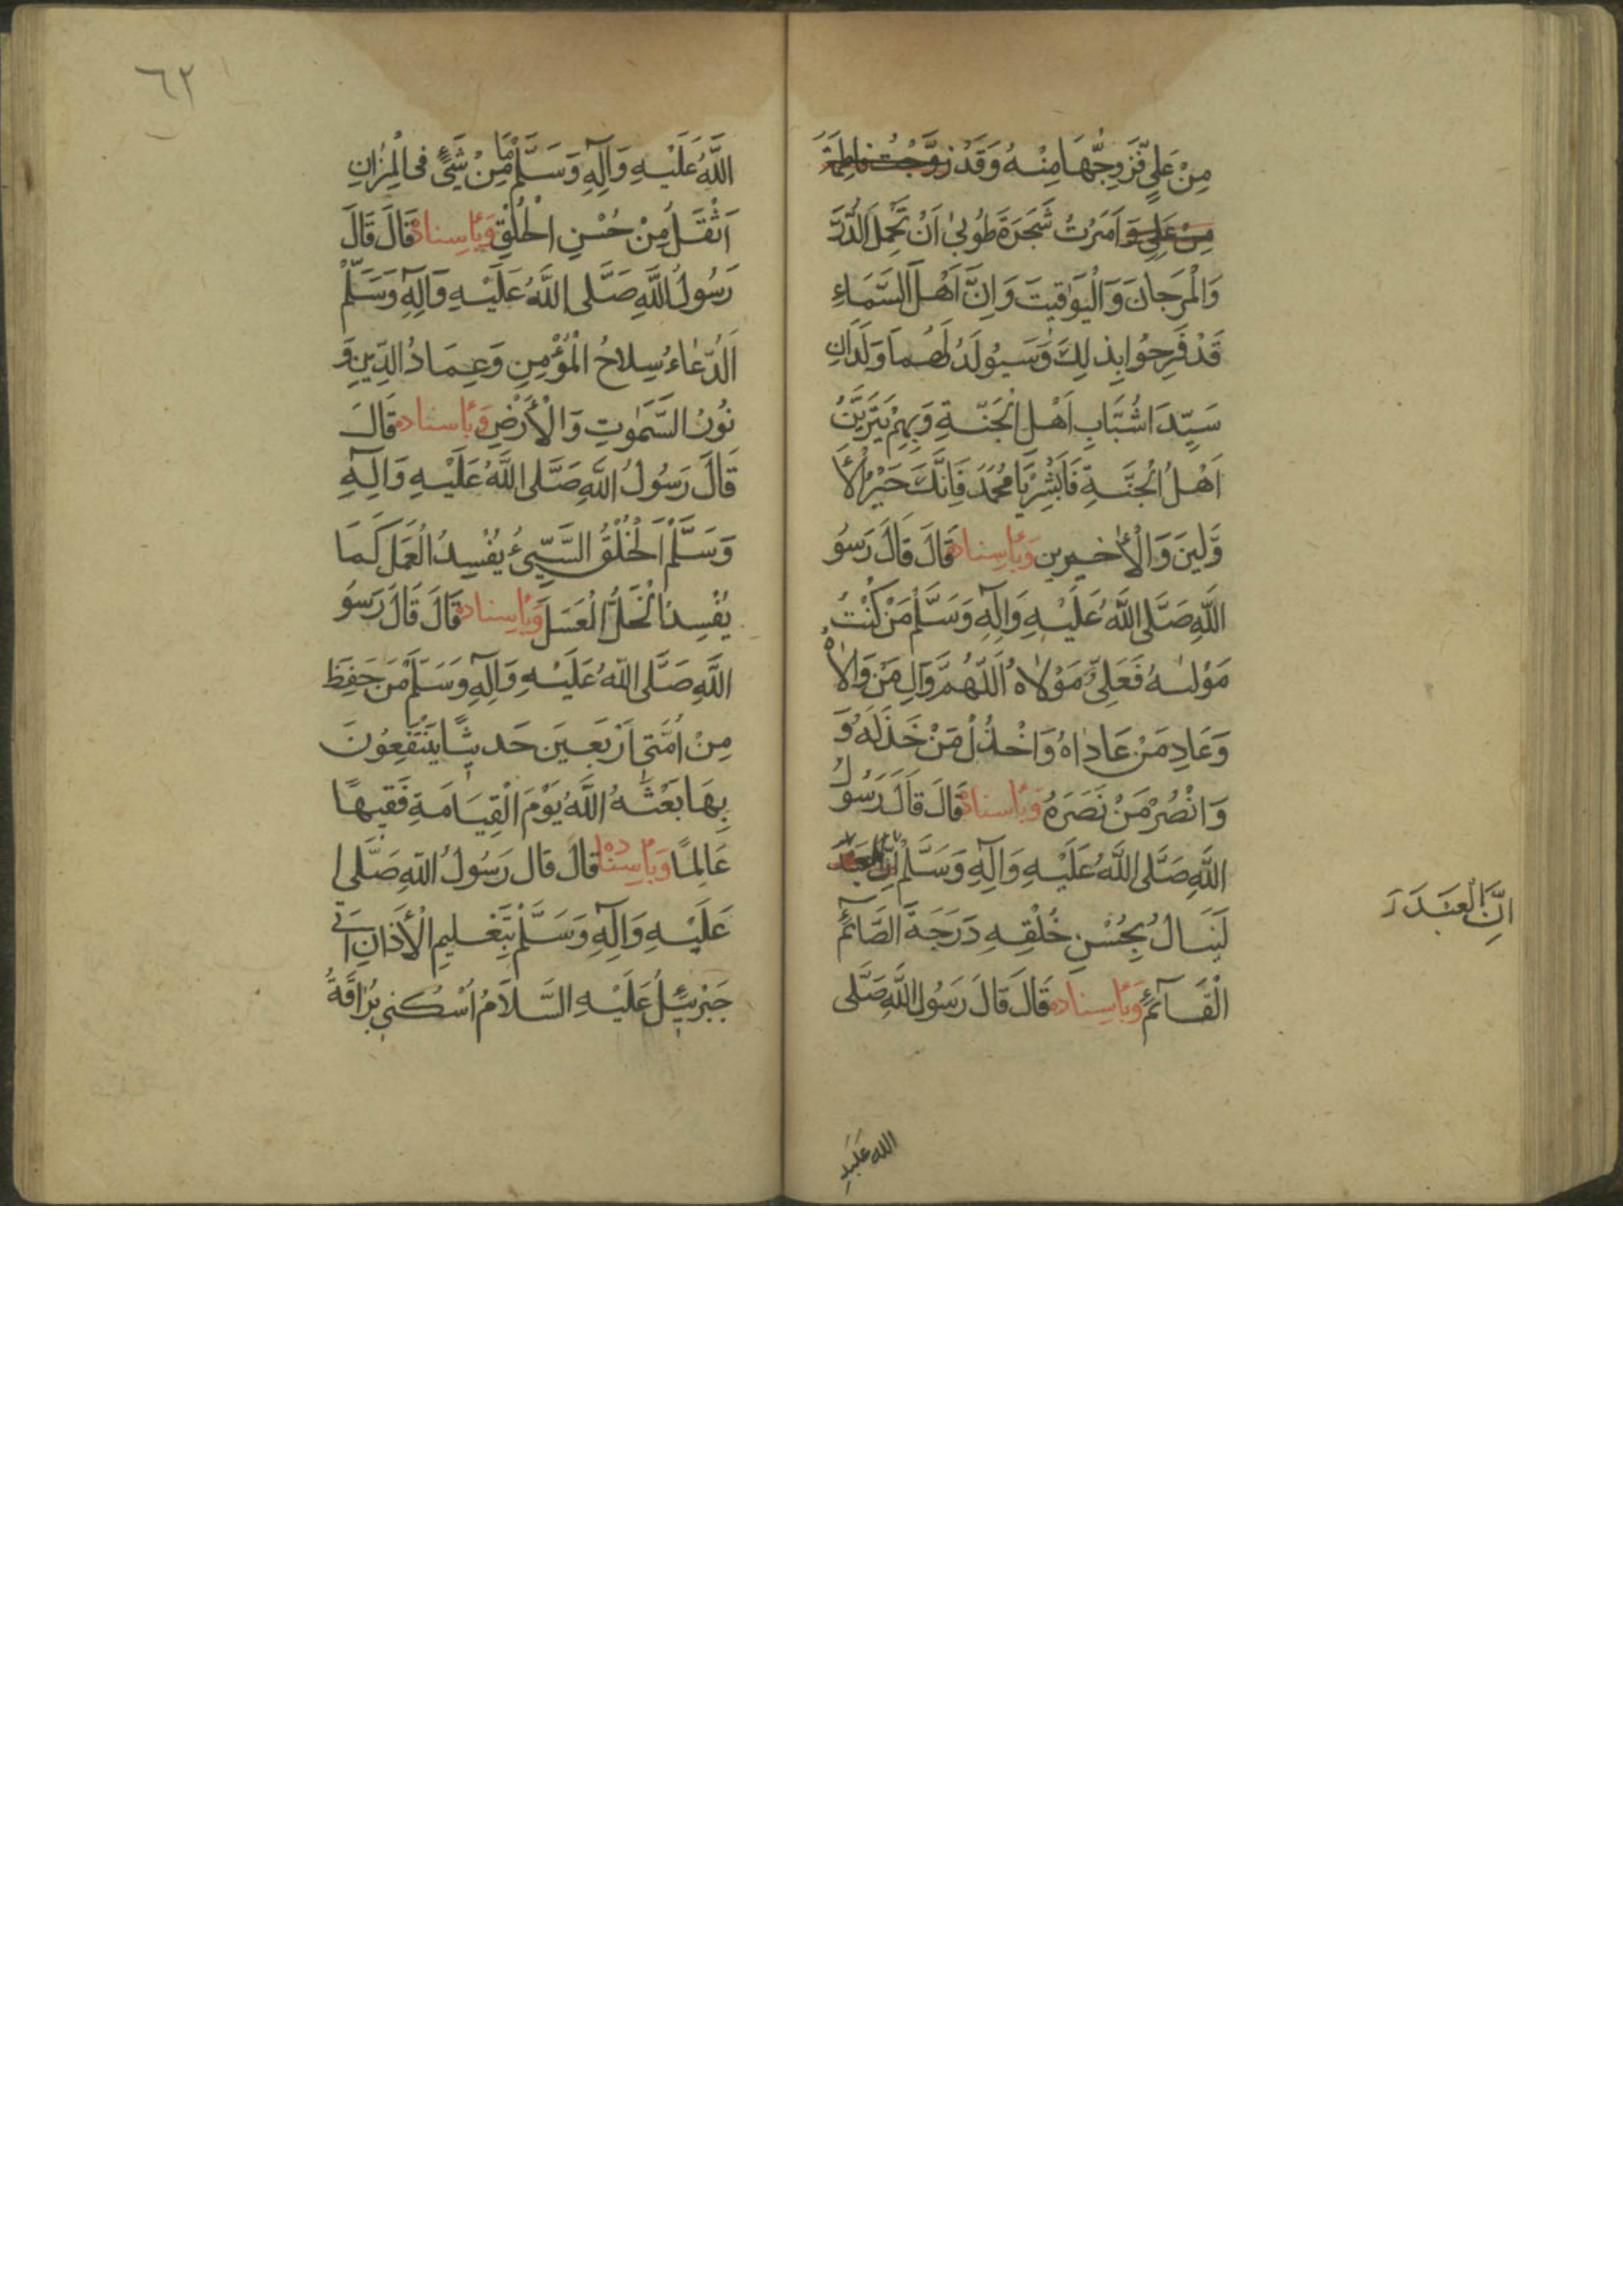 مِنْ عَلِيٍّ فَزَوِّجْهَا مِنْهُ وَقَدْ زَوَّجْتُ فَاطِمَةَ
مِنْ عَلِيٍّ وَاَمَرْتُ شَجَرَةَ طُوبٰى اَنْ تَحْمِلَ الدُّرَّ
وَالْمَرْجَانَ وَالْيَوٰاقيتَ وَاِنَّ اَهْلَ السَّمَاءِ
قَدْ فَرِحُوا بِذٰلِكَ وَسَيُولَدُ لَهُمَا وَلَدَانِ
سَيِّدَا شُبَّابِ اَهْلِ الْجَنَّةِ وَبِهِمْ يَتَزَيَّنُ
اَهْلُ الْجَنَّةِ فَاَبْشِرْ يَا مُحَمَّدُ فَاِنَّكَ خَيْرُ الْأَ
وَّلينَ وَالْأٰخِرين وَبِأِسنادهِ قَالَ قَالَ رَسُو
اللّٰهِ صَلَّى اللّٰهُ عَلَيْهِ وَآلِهِ وَسَلَّمْ مَنْ كُنْتُ
مَوْلٰىهُ فَعَلِىٌّ مَوْلٰاهُ اَللّٰهُمَّ وَالِ مَنْ وَالٰاهُ
وَعَادِ مَنْ عَادٰاهُ وَاخْذُلْ مَنْ خَذَلَهُ وَ
وَانْصُرْ مَنْ نَصَرَهُ وَبِأِسنادهِ قَالَ قَالَ رَسُولُ
اللّٰهِ صَلَّى اللّٰهُ عَلَيْهِ وَآلِهِ وَسَلَّمْ اِنَّ الْعَبْدَ
اِنَّ الْعَبْدَ
لَيَنَالُ بِحُسْنِ خُلْقِهِ دَرَجَةَ الصَّائِمِ
الْقَآئِمِ وَبِأِسنادهِ قَالَ قَالَ رَسُولُ اللّٰهِ صَلَّى
الله عَلَيهِ
٦٢
اللّٰهُ عَلَيْهِ وَآلِهِ وَسَلَّمْ مَا مِنْ شَىْءٍ فِى الْمِيزَانِ
اَثْقَلُ مِنْ حُسْنِ الْخُلْقِ وَبِأِسنادهِ قَالَ قَالَ
رَسُولُ اللّٰهِ صَلَّى اللّٰهُ عَلَيْهِ وَآلِهِ وَسَلَّمْ
اَلدُّعٰاءُ سِلاحُ الْمُؤْمِنِ وَعِمَادُ الدِّينِ وَ
نُورُ السَّمٰوٰتِ وَالْأَرْضِ وَبِأِسنادهِ قَالَ
قَالَ رَسُولُ اللّٰهِ صَلَّى اللّٰهُ عَلَيْهِ وَآلِهِ
وَسَلَّمْ اَلْخُلْقُ السَّيِّئُ يُفْسِدُ الْعَمَلَ كَمَا
يُفْسِدُ الْخَلُّ الْعَسَلَ وَبِأِسنادهِ قَالَ قَالَ رَسُو
اللّٰهِ صَلَّى اللّٰهُ عَلَيْهِ وَآلِهِ وَسَلَّمْ مَنْ حَفِظَ
مِنْ اُمَّتى اَرْبَعينَ حَديثًا يَنْتَفِعُونَ
بِهَا بَعَثَهُ اللّٰهُ يَوْمَ الْقِيَامَةِ فَقيهًا
عَالِمًا وَبِأِسنادِهِ قَالَ قَالَ رَسُولُ اللّٰهِ صَلَّى ا
عَلَيْهِ وَآلِهِ وَسَلَّمْ بِتَعْليمِ الْأَذَانِ اَتٰى
جَبْرَئيلُ عَلَيْهِ السَّلَامُ اُسْكُنى بُرَاقَةُ